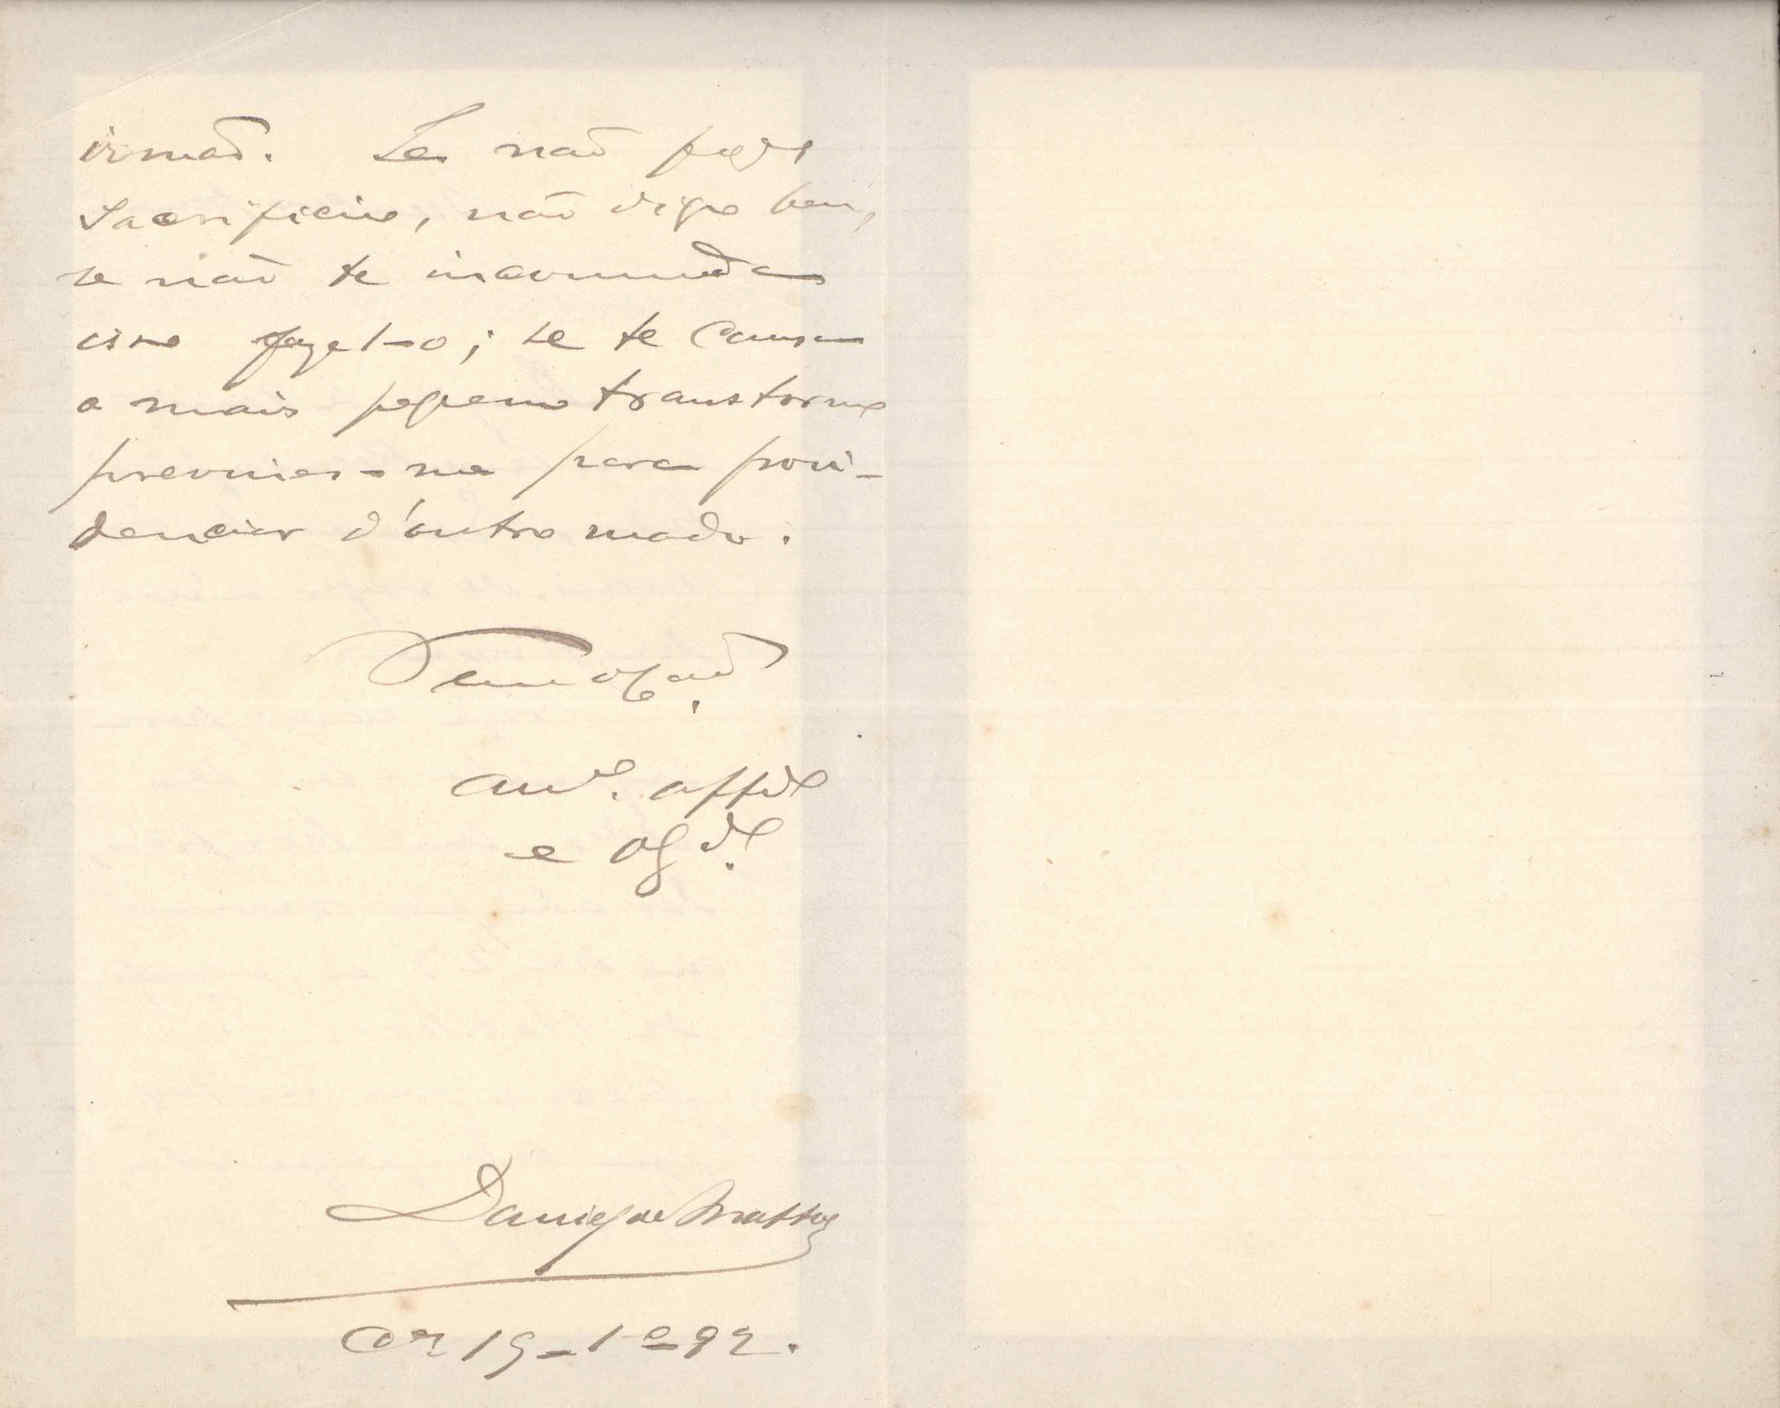 irmaõ. Se naõ fazes
sacrificio, não digo bem,
se não te incommoda
isso fazel-o; se te causa
a mais pequeno transtorno
prevines-me para provi-
denciar d'outro modo.
Teu
am.º aff.do
e obg.do
Daniel de Mattos
19-1º-92.